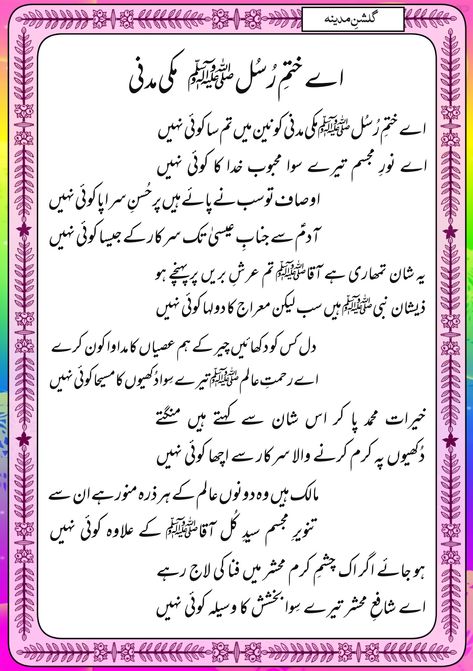 گلشنِ مدینہ
اے ختمِ رُسُل ﷺ مکی مدنی
اے ختمِ رُسُل ﷺ مکی مدنی کونین میں تم سا کوئی نہیں
اے نورِ مجسم تیرے سوا محبوب خدا کا کوئی نہیں
اوصاف تو سب نے پائے ہیں پر حُسنِ سراپا کوئی نہیں
آدمؑ سے جنابِ عیسیٰ تک سرکار کے جیسا کوئی نہیں
یہ شان تمھاری ہے آقا ﷺ تم عرشِ بریں پر پہنچے ہو
ذیشان نبی ﷺ ہیں سب لیکن معراج کا دولہا کوئی نہیں
دل کس کو دکھائیں چیر کے ہم عصیاں کا مداوا کون کرے
اے رحمتِ عالم ﷺ تیرے سِوا دُکھیوں کا مسیحا کوئی نہیں
خیرات محمد پا کر اس شان سے کہتے ہیں منگتے
دُکھیوں پہ کرم کرنے والا سرکار سے اچھا کوئی نہیں
مالک ہیں وہ دونوں عالم کے ہر ذرہ منور ہے ان سے
تنویرِ مجسم سیدِ کُل آقا ﷺ کے علاوہ کوئی نہیں
ہو جائے اگر اک چشمِ کرم محشر میں فنا کی لاج رہے
اے شافعِ محشر تیرے سِوا بخشش کا وسیلہ کوئی نہیں